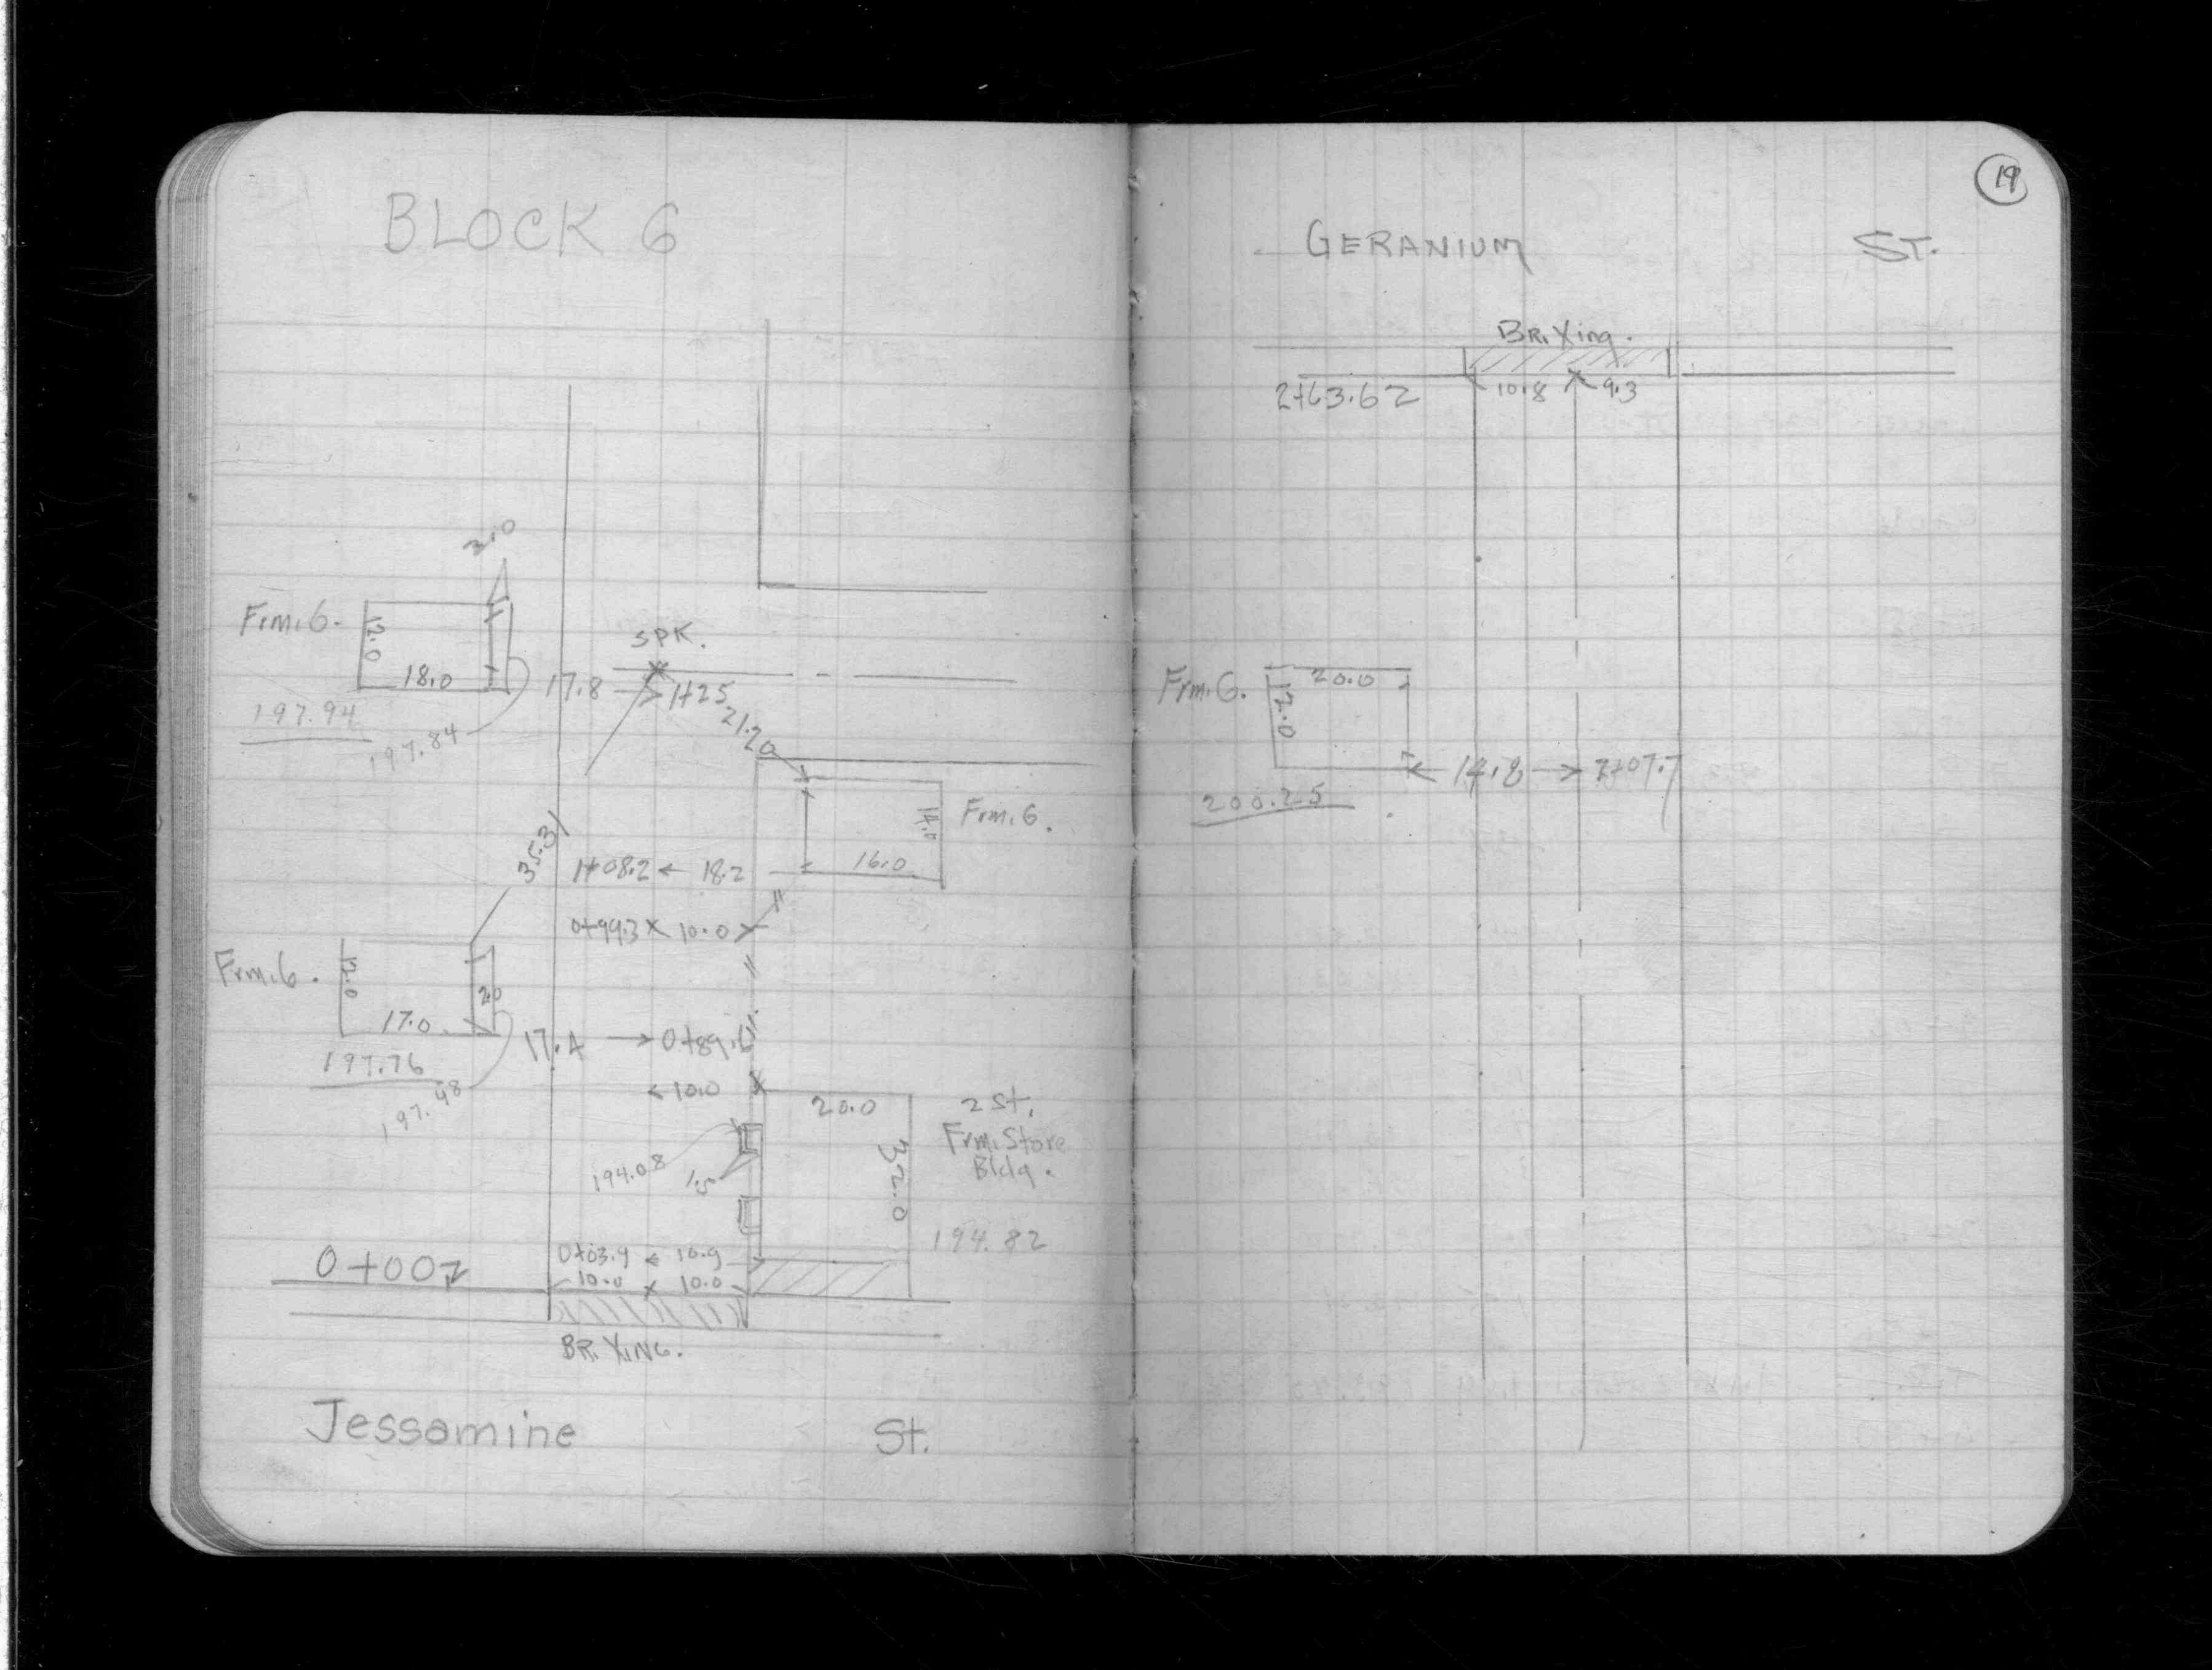 BLOCK 6
2.0
Frm.G.
12.0
18.0
197.94
197.84
SPK.
17.8 → 1+25
21.20
14.0
Frm.G.
16.0
1+08.2 ← 18.2
35.31
0+99.3 × 10.0
Frm.G.
12.0
2.0
17.0
197.76
197.48
17.4 → 0+89.0
← 10.0
20.0
2 St.
Frm. Store
Bldg.
32.0
194.08
1.5
194.82
0+03.9 ← 10.9
0+00
10.0 × 10.0
BR. XING.
Jessamine St.
19
GERANIUM ST.
BR. Xing.
2+63.62
10.8
9.3
Frm. G.
20.0
12.0
← 14.8 → 2+07.7
200.25